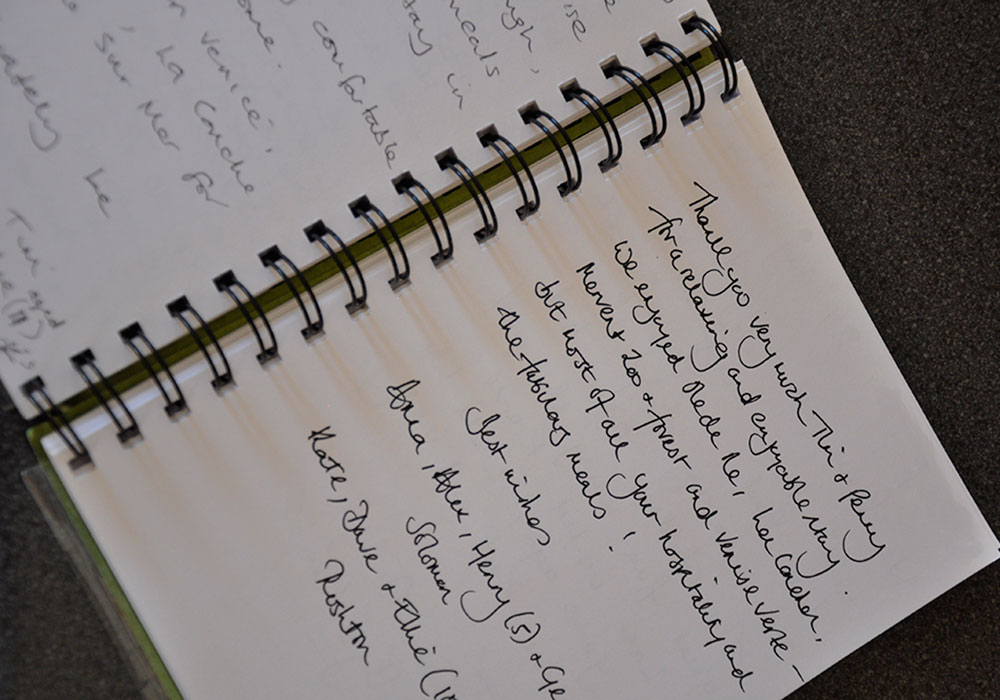 comfortable
meals
in
venice,
La Conche
Sur Mer for
he
Thank you very much Tim & Penny
for a relaxing and enjoyable stay.
We enjoyed
Mervent Zoo & forest and venise verte -
but most of all your hospitality and
the fabulous meals!
Best wishes
Anna, Alex, Henry (5) & Ge
Solomon
Kate, Dave & Ellie (10
Rushton